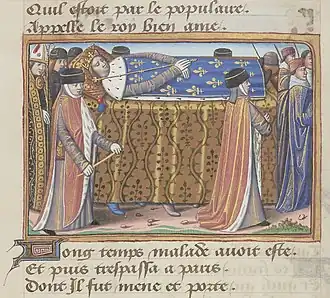 Quil estoit par le populaire.
Appelle le roy bien ame.
Long temps malade avoit este.
Et puis trespassa a paris.
Dont Il fut mene et porte.